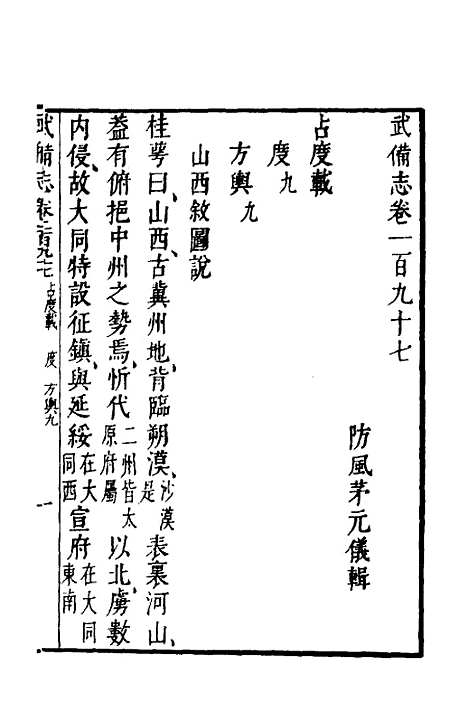 武備志卷一百九十七
防風茅元儀輯
占度載
度九
方輿九
山西敘圖說
桂萼曰山西古冀州地背臨朔漠是沙漠表裏河山
蓋有俯挹中州之勢焉忻代二州皆太原府屬以北虜數
內侵故大同特設征鎮與延綏在大同西宣府在大同東南
武備志卷一百九七 占度載 度 方輿九 一